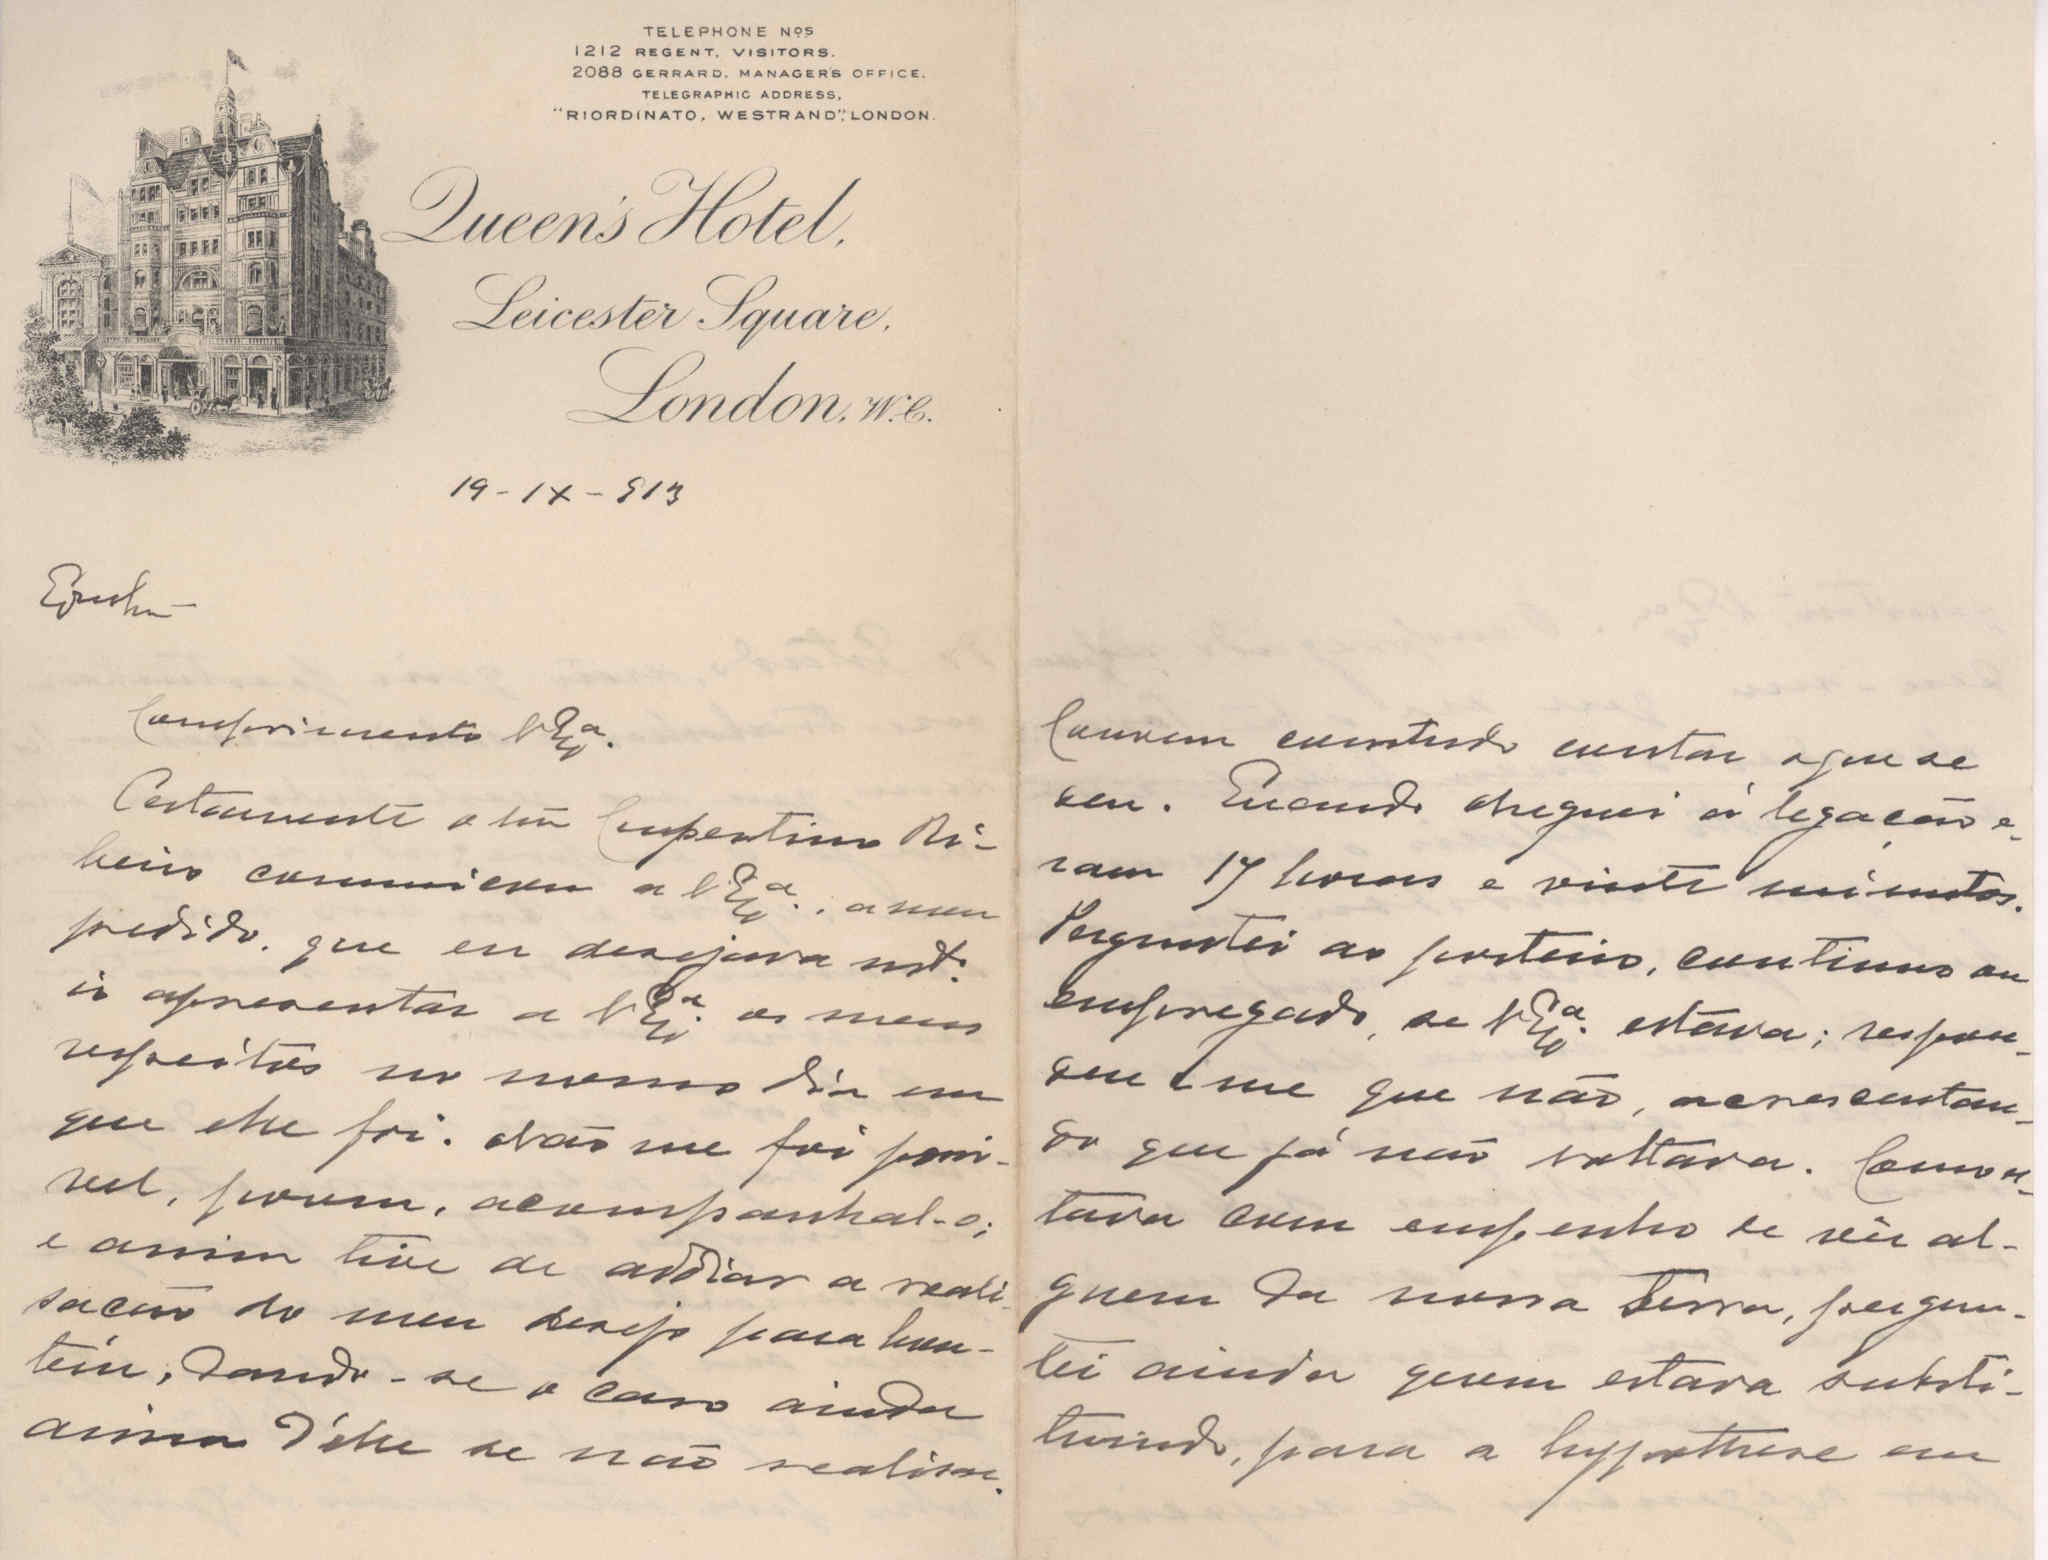 TELEPHONE Nos
1212 REGENT, VISITORS.
2088 GERRARD, MANAGER'S OFFICE.
TELEGRAPHIC ADDRESS,
"RIORDINATO, WESTRAND", LONDON.
Queen's Hotel,
Leicester Square,
London, W.C.
19-IX-913
Comprimento V. Exa.
Certamente o Lupertino Ri-
beiro communicou a V. Exa., a meu
pedido, que eu desejava
ir apresentar a V. Exa. os meus
respeitos no mesmo dia em
que elle foi. Não me foi possi-
vel, porem, acompanhal-o;
e assim tive de addiar a reali-
sação do meu desejo para hon-
tem, dando-se o caso ainda
assim d'elle se não realisar.
Convem comtudo contar o que se
deu. Quando cheguei á legação e-
ram 17 horas e vinte minutos.
Perguntei ao porteiro, continuo ou
empregado, se V. Exa. estava; respon-
deu-me que não, acrescentan-
do que já não voltava. Como es-
tava com empenho de vêr al-
guem da nossa terra, pergun-
tei ainda quem estava substi-
tuindo, para a hypothese em